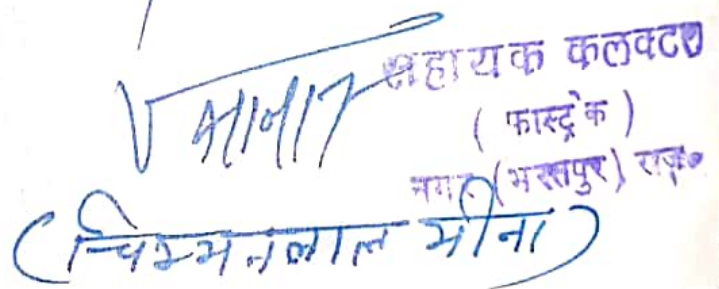 सहायक कलक्टर
( फास्ट्रेक )
नगर (भरतपुर) राज०
(चिम्मनलाल मीना)